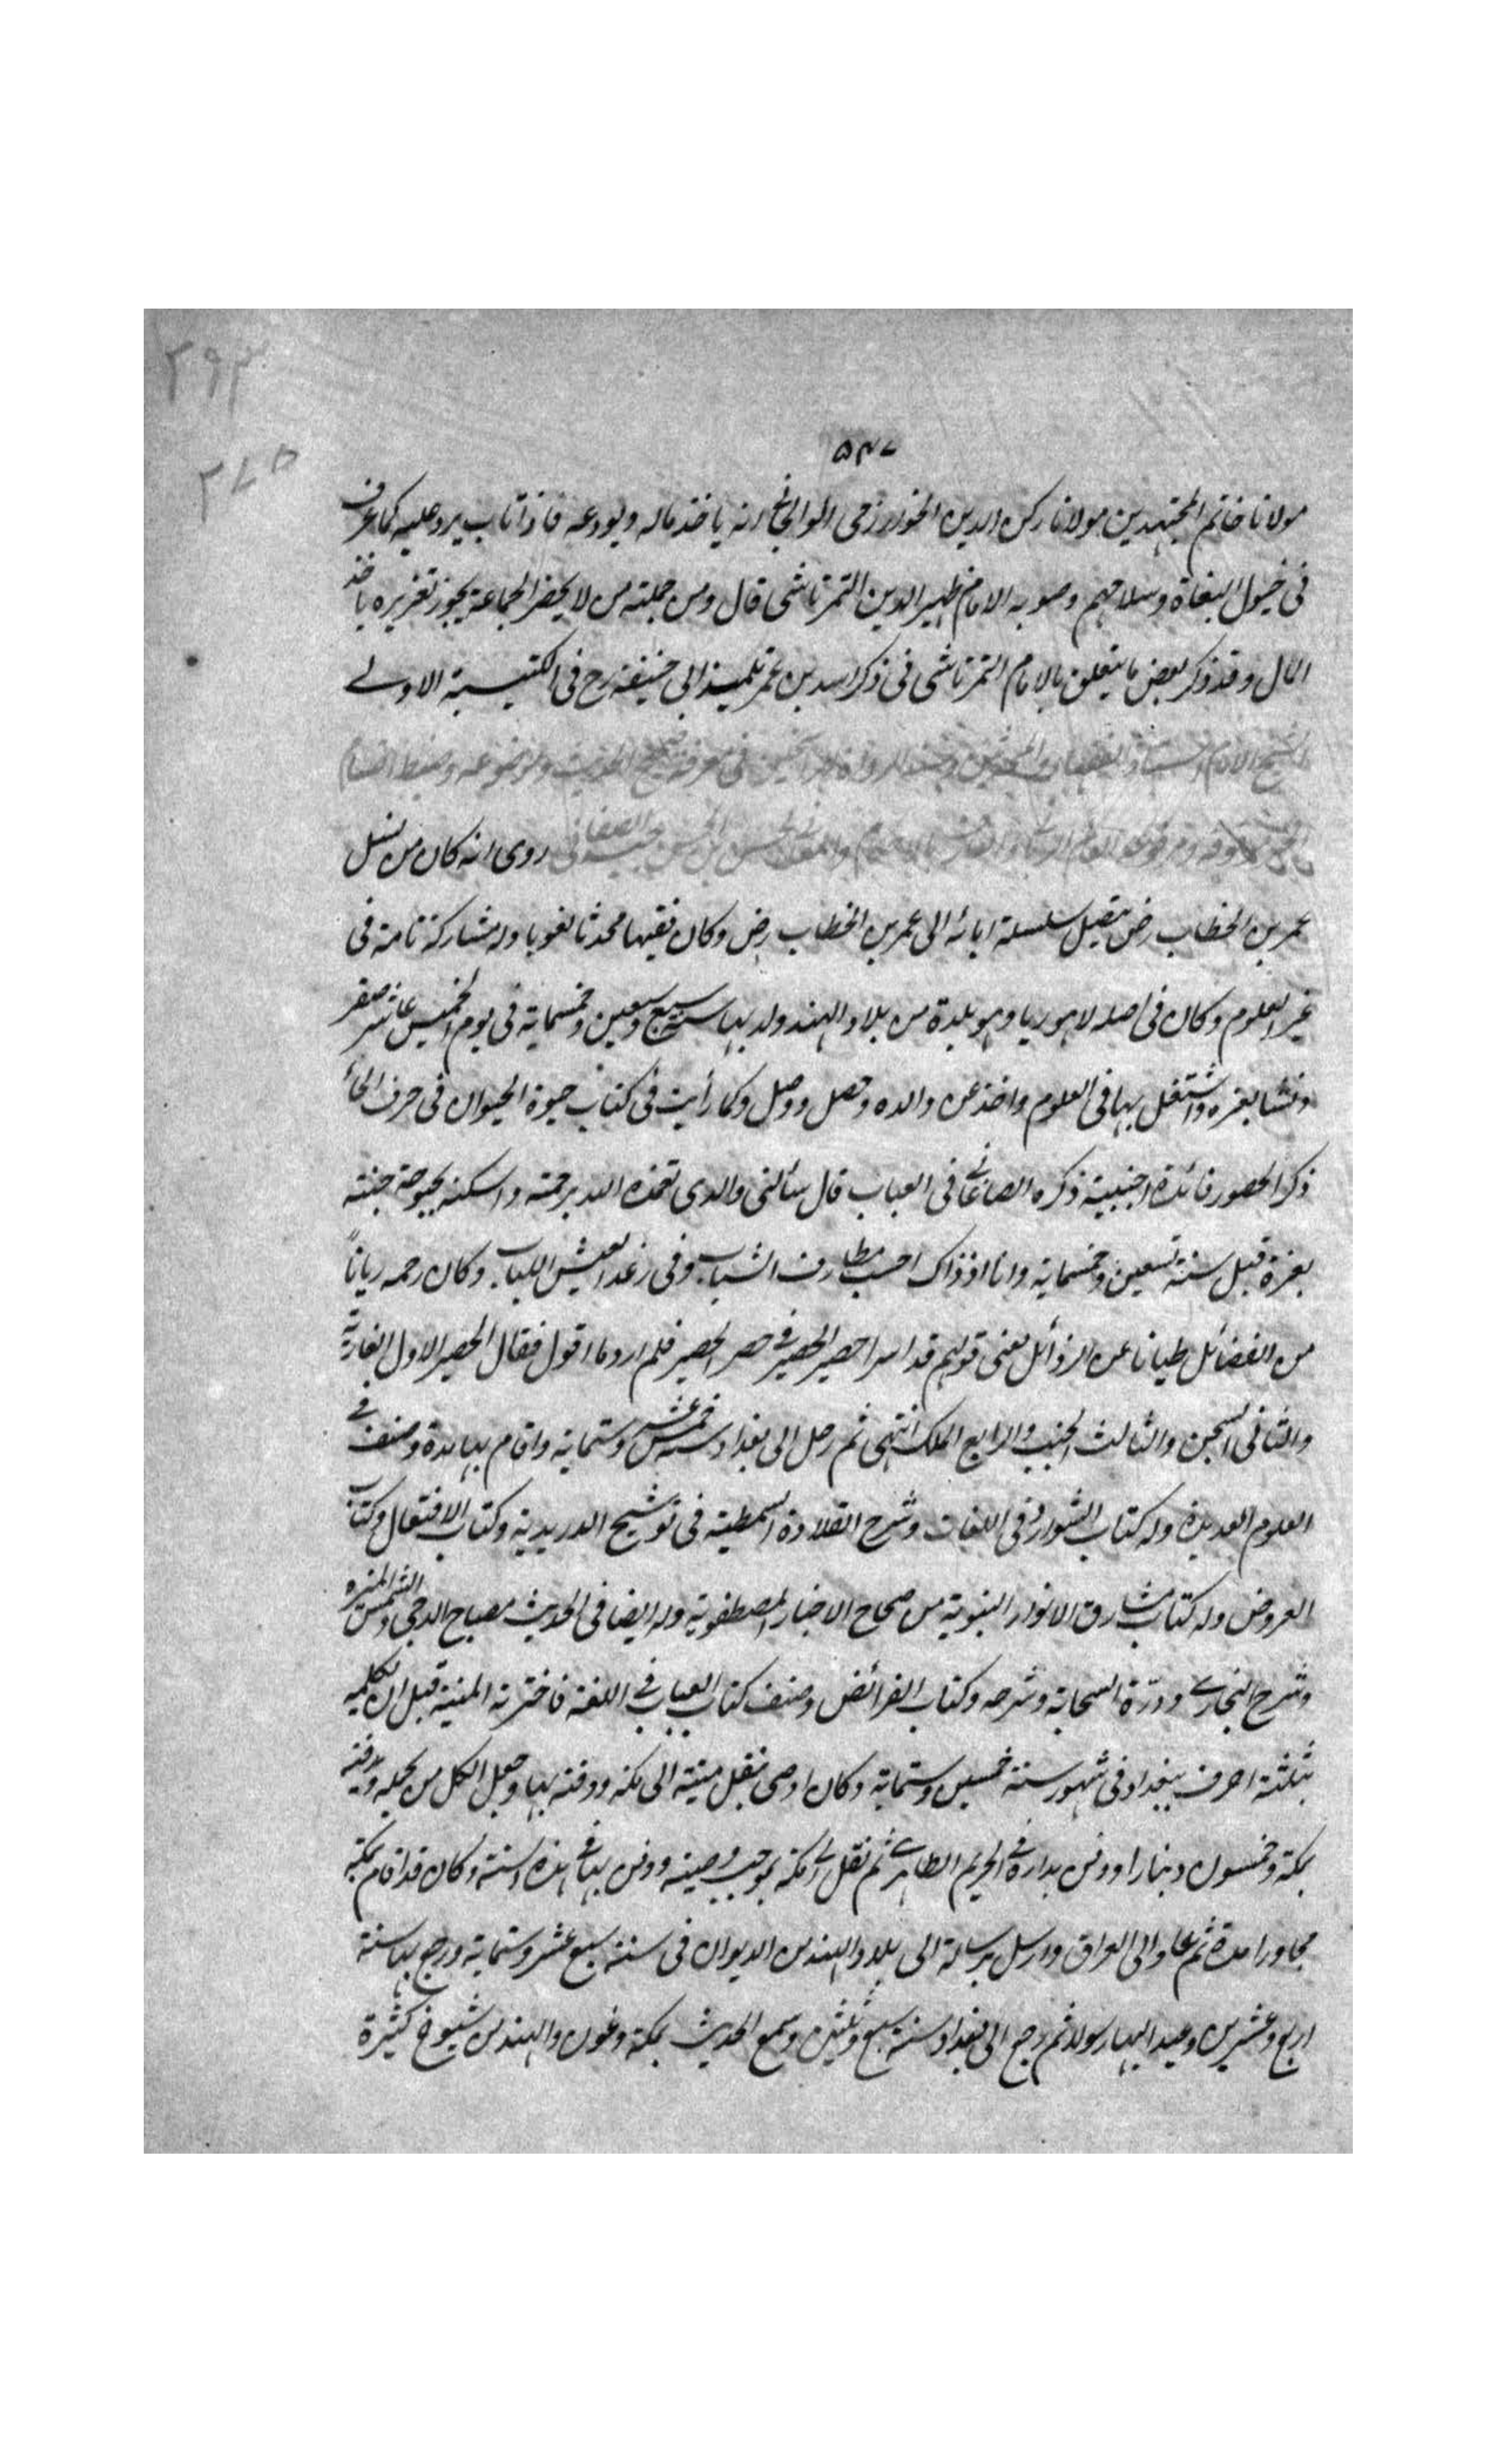 ٢٩٣
٢٧٥
٥٣٧
مولانا خاتم المجتهدين مولانا ركن الدين الخوارزمى الوالجانى انه ياخذ ماله ويودعه فاذا تاب يرد عليه كما عرف
فى خيول البغاة وسلاحهم وصوبه الامام ظهير الدين التمرتاشى قال ومن جملته من لا يحضر الجماعة يجوز تعزيره باخذ
المال وقد ذكر بعض ما يتعلق بالامام التمرتاشى فى ذكر اسد بن عمر تلميذ ابى حنيفة رح فى الكتيبة الاولے
الشيخ الامام استاذ الفقهاء والمحدثين وسند الرواة فى معرفة صحيح الحديث وموضوعه وضبط
ومرفوعه الحسن بن محمد بن الحسن الصغانى روى انه كان من نسل
عمر بن الخطاب رض يتصل سلسلة ابائه الى عمر بن الخطاب رض وكان فقيها محدثا لغويا وله مشاركة تامة فى
غير العلوم وكان فى اصله لاهوريا وهو بلدة من بلاد الهند ولد بها سنة سبع وسبعين وخمسماية فى يوم الخميس عاشر صفر
ونشا بغزنه واشتغل بها فى العلوم واخذ عن والده وحصل ووصل وكما رأيت فى كتاب حيوة الحيوان فى حرف الحاء
ذكر الحصور فائدة اجنبية ذكره الصاغانے فى العباب قال سألنى والدى تغمده الله برحمته واسكنه بحبوحة جنته
بغزنة قبل سنة تسعين وخمسماية وانا اذ ذاك اسحب مطارف الشباب وفى رغد العيش اللباب وكان رحمه ريانا
من الفضائل طيانا عن الرذائل معنى قولهم قد اسر احصير الحصير فے حصر الحصير فلم ادر ما اقول فقال الحصير الاول البارية
والثانى السجن والثالث الجنب والرابع الملك انتهى ثم رحل الى بغداد سنة خمس عشر وستماية واقام بها مدة وصنف فے
العلوم العديدة وله كتاب الشوارد فى اللغات وشرح القلادة السمطية فى توشيح الدريدية وكتاب الافتعال وكتاب
العروض وله كتاب مشارق الانوار النبوية من صحاح الاخبار المصطفوية وله ايضا فى الحديث مصباح الدجى والشمس المنيره
وشرح البخارے ودرّة السحابة وشرحه وكتاب الفرائض وصنف كتاب العباب فے اللغة فاخترته المنية قبل ان يكمله
بثلثة احرف ببغداد فى شهور سنة خمسين وستماية وكان اوصى بنقل ميتة الى مكة ودفنه بها وجعل لكل من يحمله ويدفنه
بمكة خمسون دينارا ودفن بداره فے الحريم الطاهرے ثم نقل الے مكة بموجب وصيته ودفن بها فے هذه السنة وكان قد اقام بمكة
مجاورا مدة ثم عاد الى العراق وارسل برسالة الى بلاد الهند من الديوان فى سنة سبع عشر وستماية ورجع بها سنة
اربع وعشرين وعيد اليها رسولا ثم رجع الى بغداد سنة سبع وثلثين وسمع الحديث بمكة وعدن والهند من شيوخ كثيرة